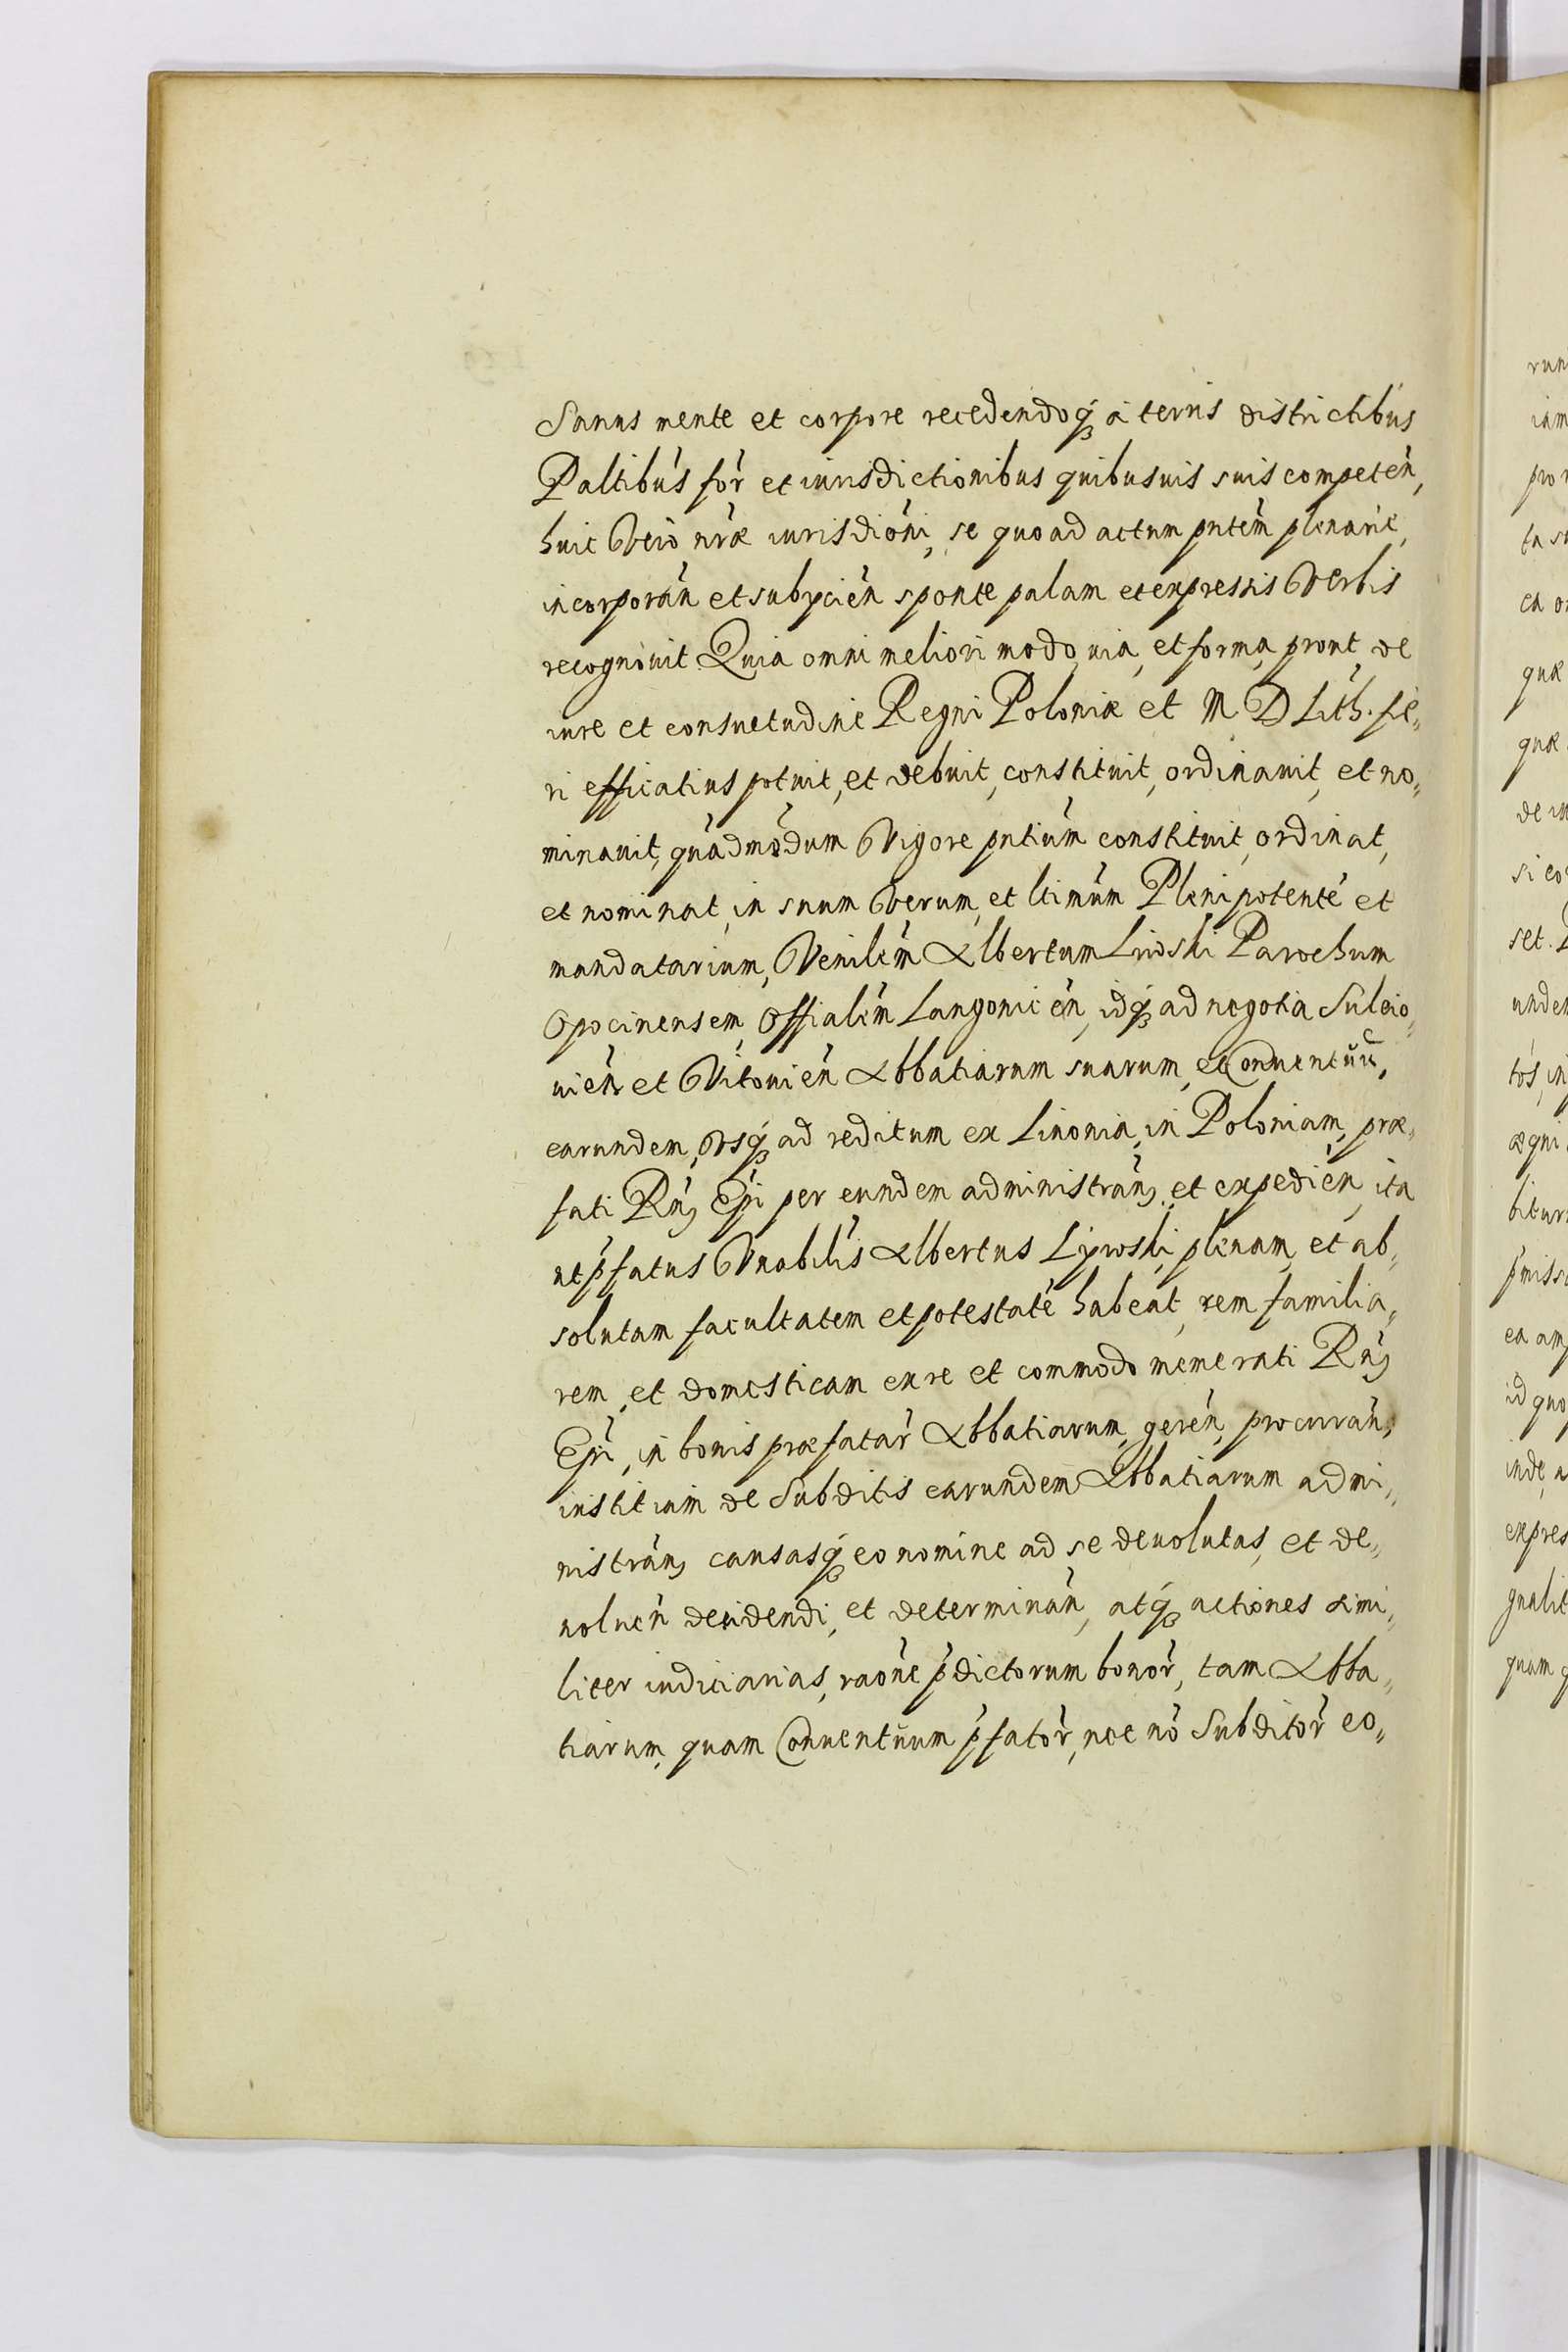 Sanus mente et corpore recedendoq́ȝ á terris districtibus
Paltibus for̀ et iurisdictionibus quibusuis suis competeǹ,
huic Vero nrae iurisdioni, se quoad actum pntem plenarie,
incorporań et subyicień sponte palam et expressis Verbis
recognouit Quia omni meliori modo uia, et forma, prout de
iure et consuetudine Regni Poloniæ et M. D Lith. fie„
ri efficatius potuit, et debuit, constituit, ordinauit, et no„
minauit, quadmodum Vigore pntium constituit, ordinat,
et nominat, in suum Verum, et ltimum Plenipotente et
mandatarium, Venilem Albertum Liwski Parochum
Opocinensem, Offialem Langonicen, idq́ȝ ad negotia Suleio„
uien et Vitouien Abbatiarum suarum, et Conuentuu,
earundem, Vsq́ȝ ad reditum ex Liuonia, in Poloniam, præ„
fati Rnȝ Epi per eundem administranȝ et expedien, ita
ut pfatus Vnabilis Albertus Lywski, plenam, et ab„
solutam facultatem et potestate habeat, rem familia„
rem, et domesticam ex re et commodo memerati Rnȝ
Epi, in bonis præfatar Abbatiarum, geren, procuranȝ
iustitiam de Subditis earundem Abbatiarum admi„
nistranȝ causasq́ȝ eo nomine ad se deuolutas, et de„
uoluen decidendi, et determinan, atq́ȝ actiones simi„
liter iudiciarias, raone pdictorum bonor, tam Abba„
tiarum, quam Conuentuum pfator, nec no Subditor eo„